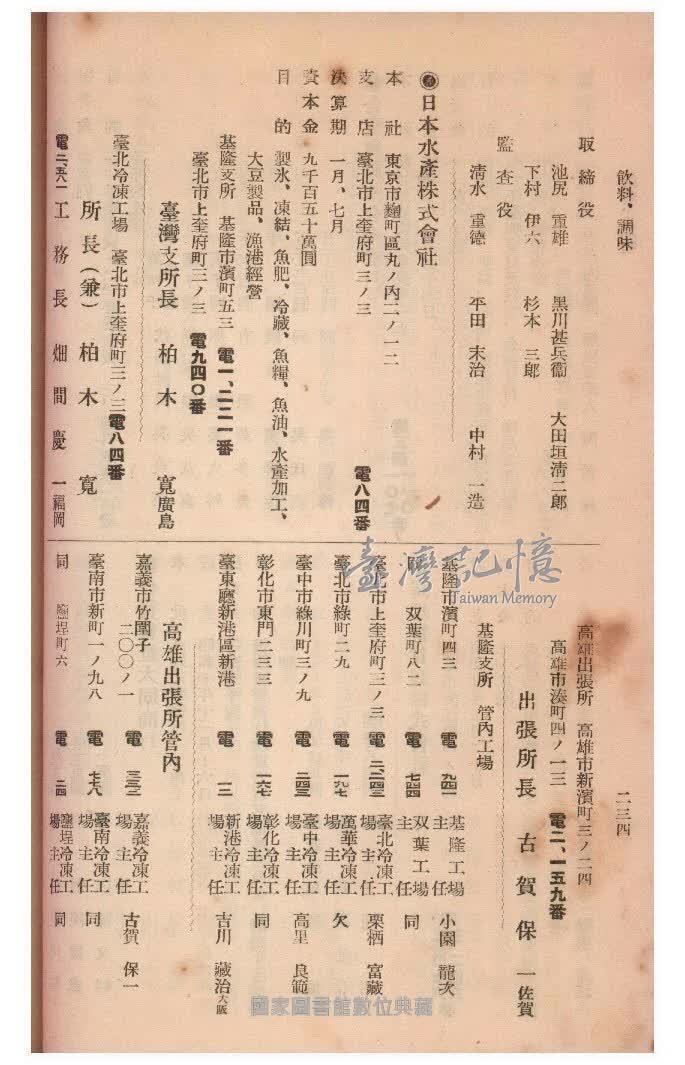 飲料、調味
二三四
取締役
池尻重雄 黑川甚兵衞 大田垣淸二郎
下村伊六 杉本三郎
監査役
淸水重德 平田末治 中村一造
日本水產株式會社
本社 東京市麴町區丸ノ內二ノ一二
支店 臺北市上奎府町三ノ三 電八四番
決算期 一月、七月
資本金 九千百五十萬圓
目的 製氷、凍結、魚肥、冷藏、魚糧、魚油、水產加工、
大豆製品、漁港經營
基隆支所 基隆市濱町五三 電一、二二一番
臺北市上奎府町三ノ三 電九四〇番
臺灣支所長 柏木寬 廣島
臺北冷凍工場 臺北市上奎府町三ノ三 電八四番
所長(兼) 柏木寬
工務長 畑間慶一 福岡
高雄出張所 高雄市新濱町三ノ二四
高雄市湊町四ノ一三 電二、一五九番
出張所長 古賀保一 佐賀
基隆支所 管內工場
基隆市濱町四三 電 九四一 基隆工場主任 小園龍次
双葉町八二 電 七四四 双葉工場主任 同
臺北市上奎府町三ノ三 電 二、二四三 臺北冷凍工場主任 栗栖富藏
臺北市綠町二九 電 一九七 萬華冷凍工場主任 欠
臺中市綠川町三ノ九 電 二四三 臺中冷凍工場主任 高里良範
彰化市東門二三三 電 一六七 彰化冷凍工場主任 同
臺東廳新港區新港 電 一三 新港冷凍工場主任 吉川藏治 大阪
高雄出張所管內
嘉義市竹圍子二〇〇ノ一 電 三三二 嘉義冷凍工場主任 古賀保一
臺南市新町一ノ九八 電 七七八 臺南冷凍工場主任 同
同 鹽埕町六 電 二四 鹽埕冷凍工場主任 同
臺灣記憶
Taiwan Memory
國家圖書館數位典藏